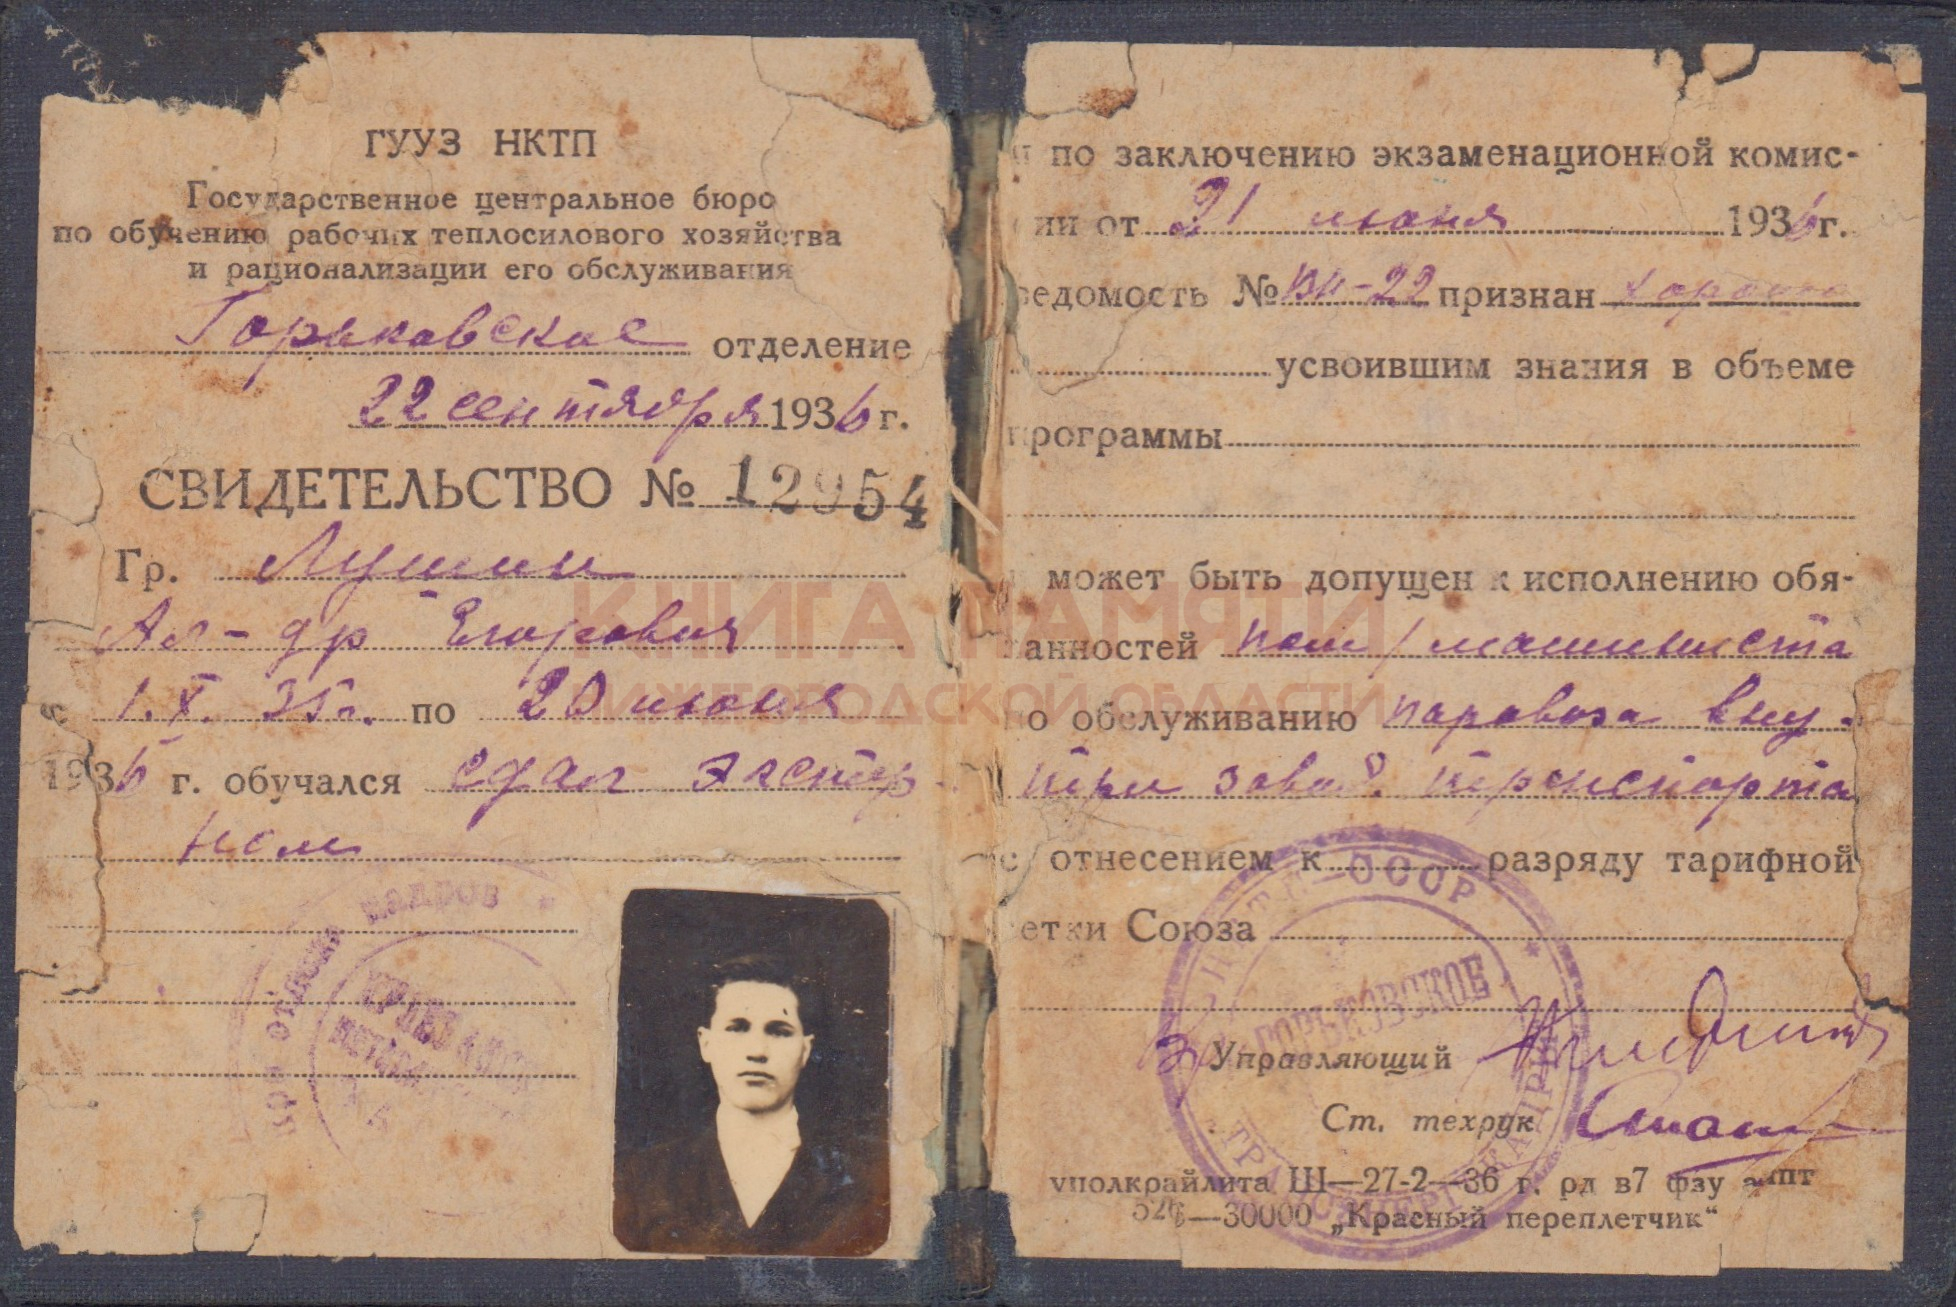 ГУУЗ НКТП
Государственное центральное бюро
по обучению рабочих теплосилового хозяйства
и рационализации его обслуживания
Горьковское отделение
22 сентября 1936 г.
СВИДЕТЕЛЬСТВО № 12954
Гр. Лушин
Ал-др Егорович
с 1.X.35г. по 20 июня
1936 г. обучался сдал экстер
ном
отдела кадров
и по заключению экзаменационной комис-
сии от 21 июня 1936г.
ведомость № ВН-22 признан хорошо
усвоившим знания в объеме
программы
и может быть допущен к исполнению обя-
занностей пом/машиниста
по обслуживанию паровоза вну-
три завод. транспорта
с отнесением к разряду тарифной
сетки Союза
СССР
ГОРЬКОВСКОЕ
Управляющий
Ст. техрук
уполкрайлита Ш—27-2—36 г. рд в7 фзу
—30000 „Красный переплетчик“
КНИГА ПАМЯТИ
НИЖЕГОРОДСКОЙ ОБЛАСТИ